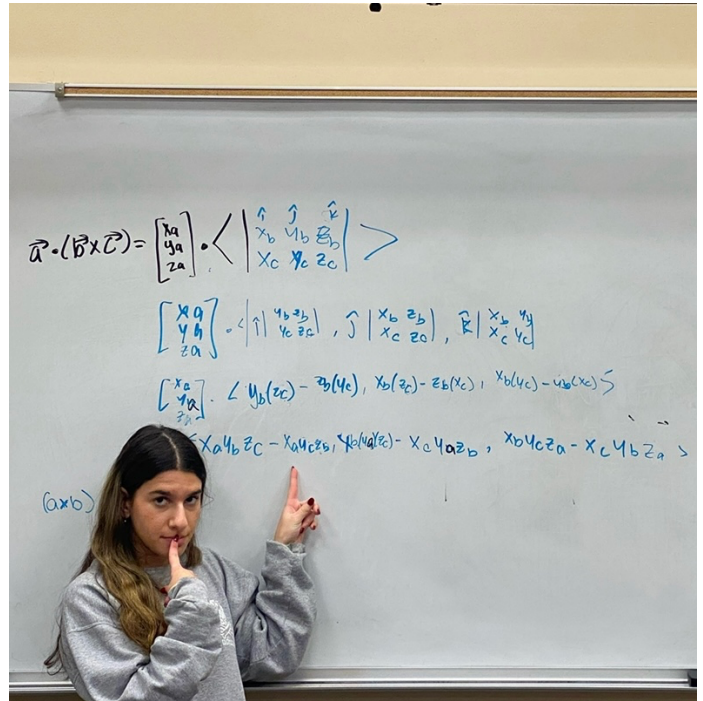 a⃗·(b⃗×c⃗)= [xa ya za] · < | î ĵ k̂
xb yb zb
xc yc zc | >
[xa ya za] · < | î | yb zb yc zc | , ĵ | xb zb xc zc | , k̂ | xb yb xc yc |
[xa ya za] · < yb(zc) − zb(yc), xb(zc) − zb(xc), xb(yc) − yb(xc) >
xaybzc − xayczb, xb(ya)(zc) − xcyazb, xbycza − xcybza >
(a×b)